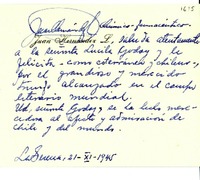 1675
Juan Hernández químico-farmacéutico
Juan Hernández L., saluda atentamente
a la señorita Lucila Godoy y le
felicita - como coterráneo y chileno -,
por el grandioso y merecido
triunfo alcanzado en el campo
literario mundial.
Ud. señorita Godoy, se ha hecho mere-
cedora al afecto y admiración de
Chile y del mundo.
La Serena, 21-XI-1945